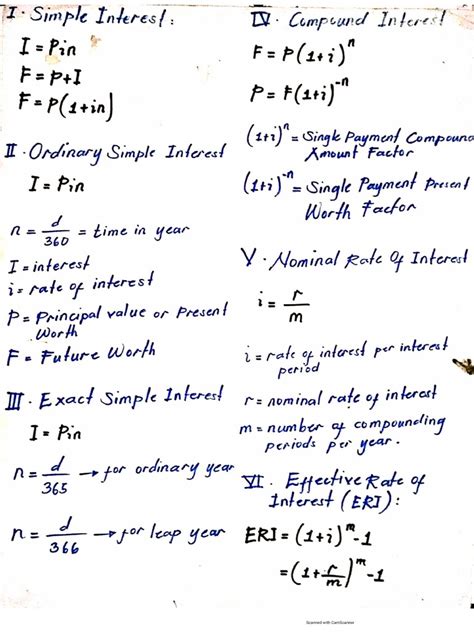 I. Simple Interest:
I = Pin
F = P+I
F = P(1+in)
II. Ordinary Simple Interest
I = Pin
n = d/360 = time in year
I = interest
i = rate of interest
P = Principal value or Present
Worth
F = Future Worth
III. Exact Simple Interest
I = Pin
n = d/365 → for ordinary year
n = d/366 → for leap year
IV. Compound Interest
F = P(1+i)^n
P = F(1+i)^-n
(1+i)^n = Single Payment Compound
Amount Factor
(1+i)^-n = Single Payment Present
Worth Factor
V. Nominal Rate Of Interest
i = r/m
i = rate of interest per interest
period
r = nominal rate of interest
m = number of compounding
periods per year.
VI. Effective Rate of
Interest (ERI):
ERI = (1+i)^m -1
= (1+r/m)^m -1
Scanned with CamScanner